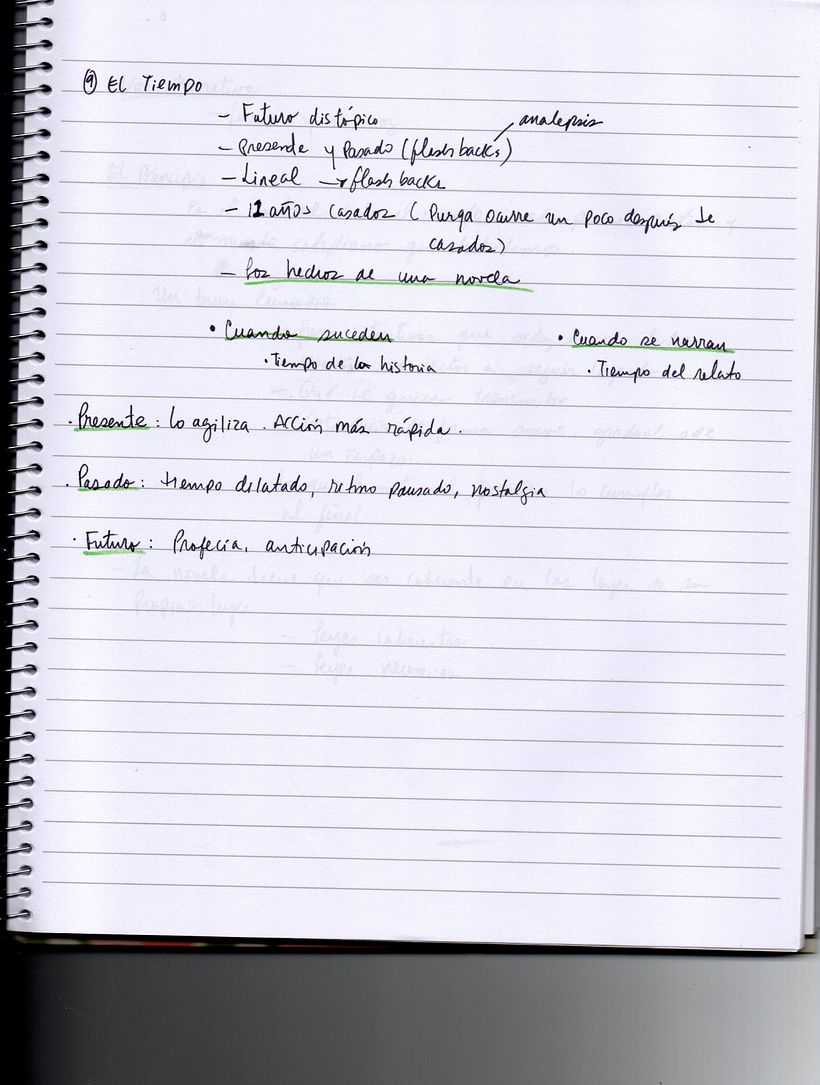 ⑨ El Tiempo
- Futuro distópico
analepsis
- Presente y Pasado (flash backs)
- Lineal → flash backs
- 12 años casados (Purga ocurre un poco después de
casados)
- Los hechos de una novela
• Cuando suceden • Cuando se narran
• Tiempo de la historia • Tiempo del relato
• Presente: Lo agiliza. Acción más rápida.
• Pasado: tiempo dilatado, ritmo pausado, nostalgia
• Futuro: Profecía, anticipación